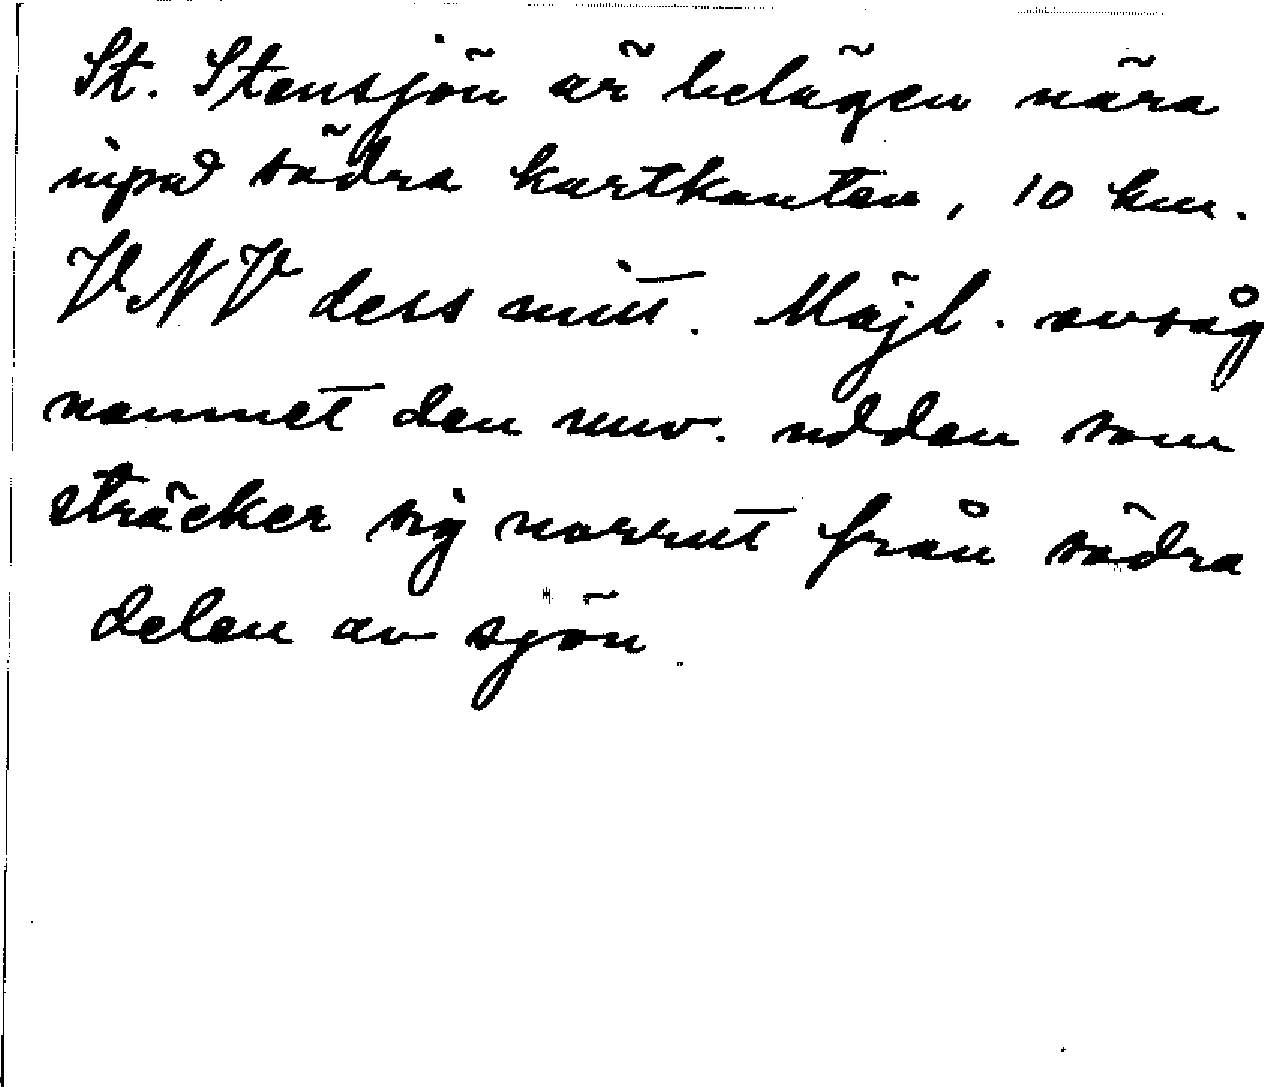 St. Stensjön är belägen nära
inpå södra kartkanten, 10 km.
VNV dess mitt. Möjl. avsåg
namnet den nuv. udden som
sträcker sig norrut från södra
delen av sjön.